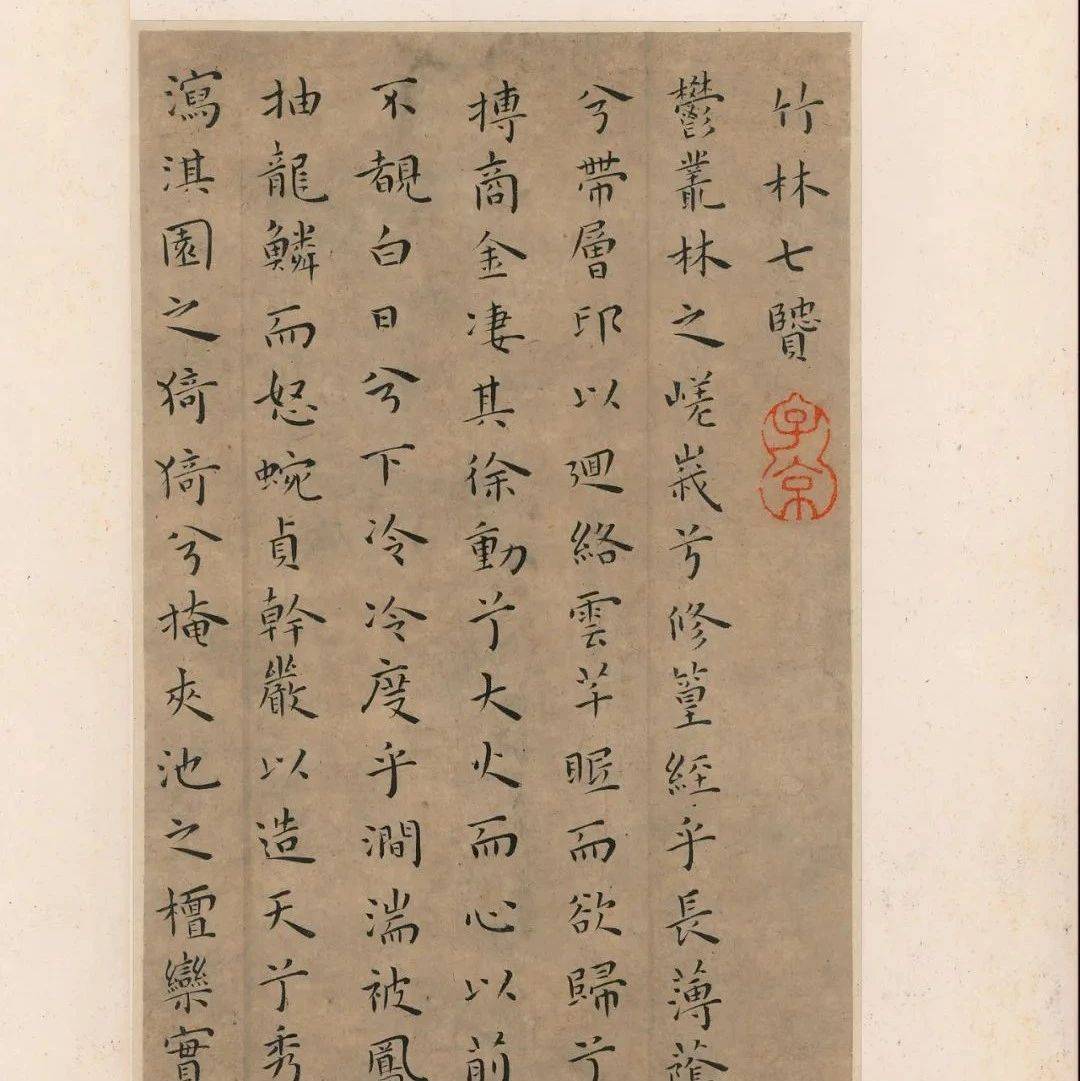 竹林七賢
子京
鬱叢林之嵯峩兮修篁經乎長薄蔭
兮帶層邱以迴絡雲芊眠而欲歸兮
摶商金凄其徐動兮大火而心以前
不覩白日兮下冷冷度乎澗湍被鳳
抽龍鱗而怒蜿貞幹嚴以造天兮秀
瀉淇園之猗猗兮掩夾池之檀欒實